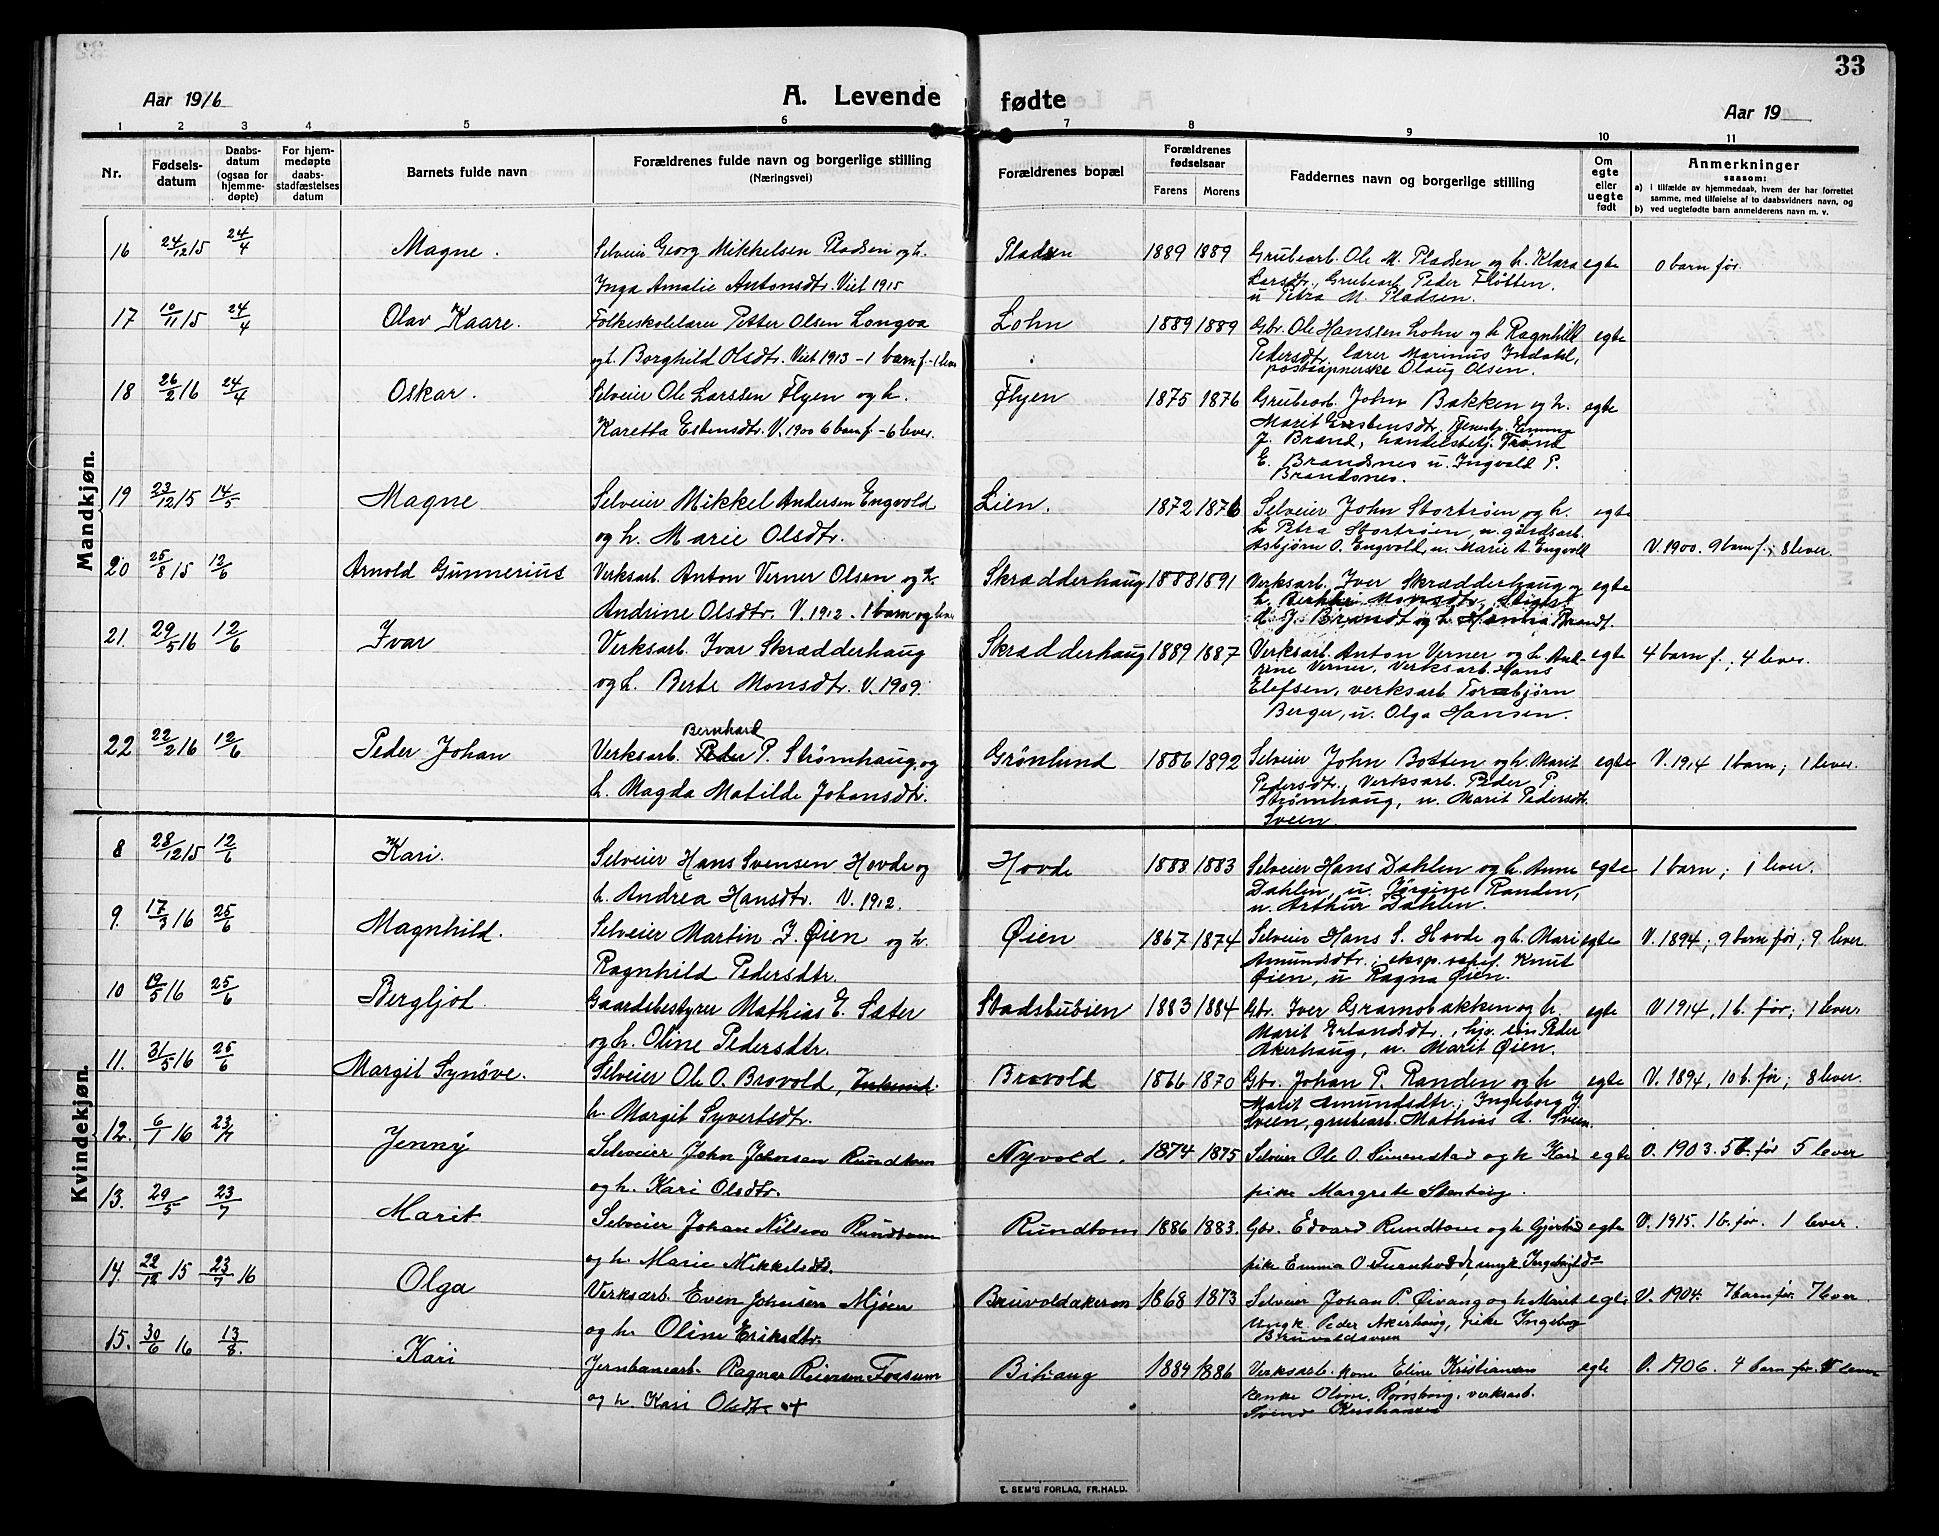 33
Aar 1916
A. Levende fødte
Aar 19
1 2 3 4 5 6 7 8 9 10 11
Nr.
Fødselsdatum
Daabsdatum (ogsaa for hjemmedøpte)
For hjemmedøpte daabsstadfæstelses datum
Barnets fulde navn
Forældrenes fulde navn og borgerlige stilling (Næringsvei)
Forældrenes bopæl
Forældrenes fødselsaar
Farens Morens
Faddernes navn og borgerlige stilling
Om egte eller uegte født
Anmerkninger
saasom:
a) i tilfælde av hjemmedaab, hvem der har forrettet samme, med tilføielse af to daabsvidners navn, og
b) ved uegtefødte barn anmelderens navn m. v.
Mandkjøn.
16 24/12 15 24/4 Magne. Selveier Georg Mikkelsen Pladsen og h. Pladsen 1889 1889 Grubearb. Ole M. Pladsen og h. Klara egte 0 barn før.
Inga Amalie Antonsdtr. Viet 1915 Larsdtr., Grubearb. Peder Fløtten.
u Petra M. Pladsen.
17 10/11 15 24/4 Olav Kaare. Folkeskolelærer Petter Olsen Longva Lohn 1889 1889 Gbr. Ole Hanssen Lohn og h Ragnhild egte
og h. Borghild Olsdtr. Viet 1913 - 1 barn f. - 1 lever Pedersdtr. lærer Marinus Indahl,
postaapnerske Olaug Olsen.
18 26/2 16 24/4 Oskar. Selveier Ole Larssen Flyen og h. Flyen 1875 1876 Grubearb. John Bakken og h. egte
Karetta Estensdtr. V. 1900 6 barn f. - 6 lever. Marit Estensdtr. Tjenestp. Emma
J. Brand, handelsbetj. Trond
E. Brandsnes u. Ingvald P.
Brandsnes.
19 23/12 15 14/5 Magne Selveier Mikkel Andersen Engvold Lien. 1872 1876 Selveier John Stortrøen og h. egte
og h. Marie Olsdtr. Petra Stortrøen, u. gårdsarb.
Asbjørn O. Engvold, u. Marie A. Engvold V. 1900. 9 barn f.; 8 lever.
20 25/8 15 12/6 Arnold Gunnerius Verksarb. Anton Verner Olsen og h. Skrædderhaug 1888 1891 Verksarb. Iver Skrædderhaug og egte
Andrine Olsdtr. V. 1912 - 1 barn og lever h. Berthe Monsdtr., Stiger
J. Brandt og h. Hanna Brandt.
21. 29/5 16 12/6 Ivar Verksarb. Ivar Skrædderhaug Skrædderhaug 1889 1887 Verksarb. Anton Verner og h. And- egte 4 barn f.; 4 lever.
og h. Berte Monsdtr. V. 1909. rine Verner, verksarb. Hans
Elefsen, verksarb Torbjørn
Berger, u. Olga Hansen.
22 22/2 16 12/6 Peder Johan Verksarb. Bernhard P. Strømhaug, og Grønlund 1886 1892 Selveier John Botten og h. Marit egte V. 1914 1 barn; 1 lever.
h. Magda Matilde Johansdtr. Pedersdtr., Verksarb. Peder P.
Strømhaug, u. Marit Pedersdtr.
Sveen.
Kvindekjøn.
8 28/12 15 12/6 Kari. Selveier Hans Svensen Hovde og Hovde 1888 1883 Selveier Hans Dahlen og h. Anne egte 1 barn; 1 lever.
h. Andrea Hansdtr. V. 1912. Dahlen, u. Jørgine Randen,
u. Arthur Dahlen.
9. 17/3 16 25/6 Magnhild. Selveier Martin J. Øien og h. Øien 1867 1874 Selveier Hans S. Hovde og h. Mari egte V. 1894; 9 barn før; 9 lever.
Ragnhild Pedersdtr. Amundsdtr.; Knut
Øien, u Ragna Øien.
10 19/5 16 25/6 Bergljot. Gaardsbestyrer Mathias E. Sæter Stadsbuøien 1883 1884 Gbr. Iver Gramobakken og h. egte V 1914, 1 b. før; 1 lever.
og h. Oline Pedersdtr. Marit Erlandsdtr., Peder
Akerhaug, u. Marit Øien.
11. 31/5 16 25/6 Margit Synøve. Selveier Ole O. Brovold, Brovold 1866 1870 Gbr. Johan P. Randen og h egte V. 1894, 10 b. før; 8 lever.
h. Margit Syvertsdtr. Marit Amundsdtr.; Ingeborg J.
Sveen, grubearb. Mathias A. Sveen.
12. 6/1 16 23/7 Jenny Selveier John Johnsen Rundtom Nyvold. 1874 1875 Selveier Ole O. Simenstad og h Kari egte V. 1903. 5 b. før 5 lever
og h. Kari Olsdtr. pike Margrete Stenhaug.
13. 29/5 23/7 Marit Selveier Johan Nilsen Rundtom Rundtom 1886 1883. Gbr. Edvard Rundtom og h Gjertrud egte V. 1915. 1 b. før. 1 lever.
og h. Marie Mikkelsdtr. pike Emma O.
14. 22/12 15 23/7 16 Olga Verksarb. Even Johnsen Mjøen Bruvoldakeren 1868 1873 Selveier Johan P. Øivang og h Marit egte V. 1904. 7 barn før. 7 lever
og h. Oline Eriksdtr. Ungk. Peder Akerhaug, pike Ingeborg
Bruvoldsveen
15. 30/6 16 13/8. Kari Jernbanearb. Ragnar Reiersen Fossum Bihaug 1884 1886 Verksarb. kone Eline Kristiansen egte V. 1906. 4 barn før lever
og h. Kari Olsdtr. enke Oline Rørosborg, verksarb.
Svend Kristiansen
E. SEM'S FORLAG, FR.HALD.